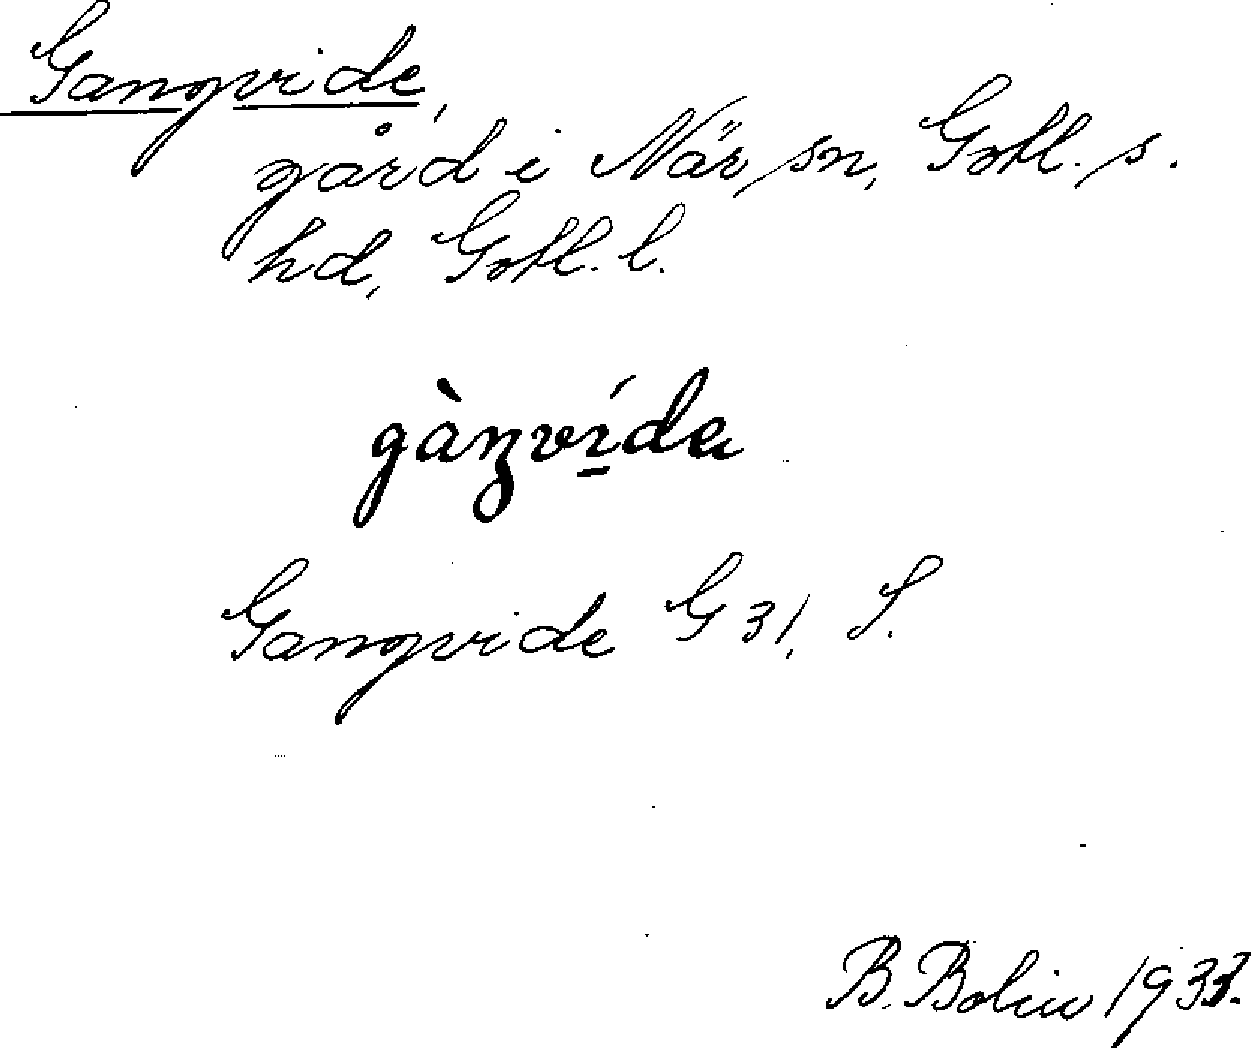 Gangvide,
gård i När sn, Gotl. s.
hd, Gotl. l.
gàŋví̱da
Gangvide G 31, S.
B. Bolin 1933.